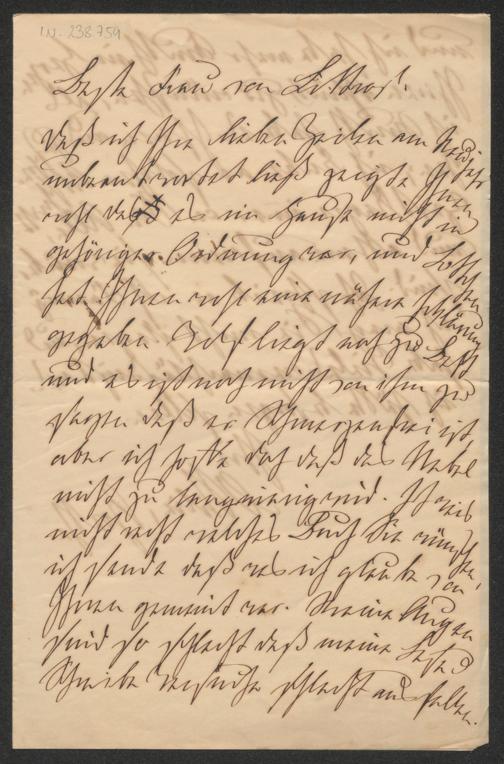 IN-238.759
Beste Frau von Littrow!
daß ich Ihre lieben Zeilen am Neujahr
unbeantwortet ließ zeigte Ihnen
wohl daß es im Hause nicht in
gehöriger Ordnung war, und
hat Ihnen wohl eine nähere Erklärung
gegeben. liegt noch zu Bett
und es ist noch nicht von ihm zu
sagen daß er Schmerzenfrei ist,
aber ich hoffe doch daß das Uebel
nicht zu langwierig wird. Ich weis
nicht recht welches Buch Sie wünschten,
ich sende daß was ich glaube von
Ihnen gemeint war. Meine Augen
sind so schlecht daß meine
Schreibe Versuche schlecht ausfallen.